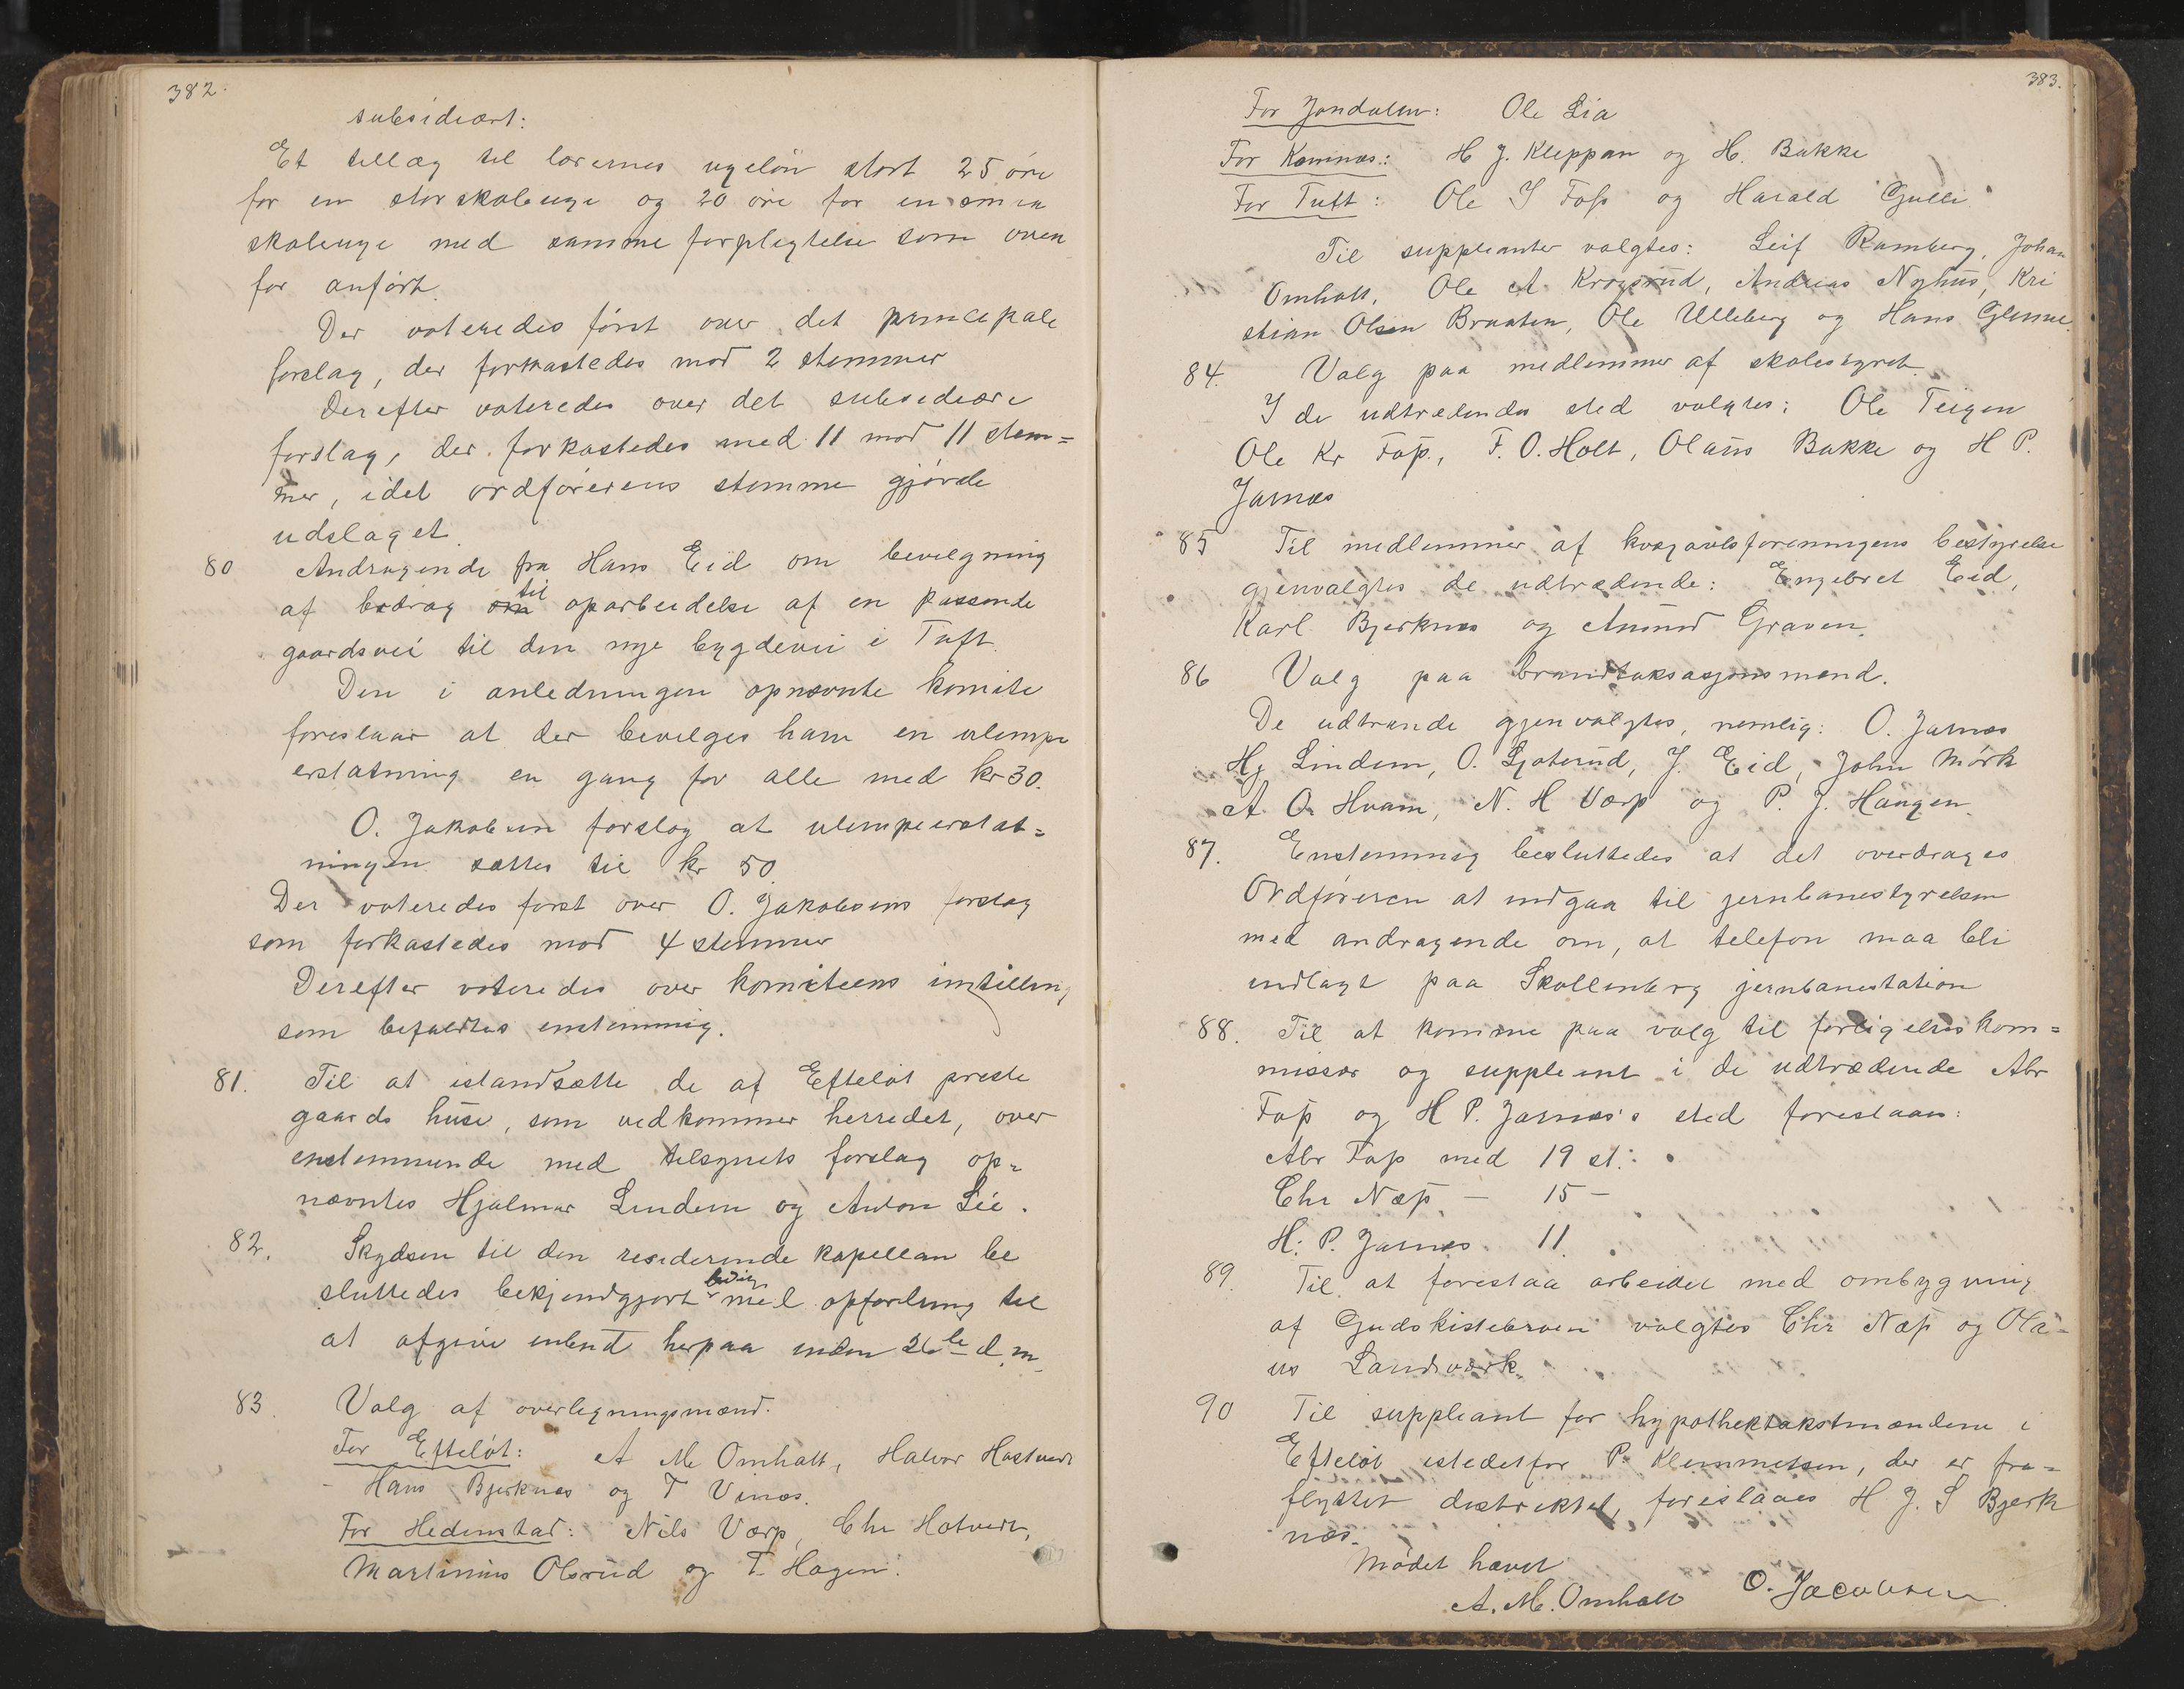 382.
subsidiært:
Et tillæg til lærernes ugeløn stort 25 øre
for en storskoleuge og 20 øre for en smaa
skoleuge med samme forpligtelse som oven
for anført.
Der voteredes først over det principale
forslag, der forkastedes mod 2 stemmer
Derefter voteredes over det subsidiære
forslag, der forkastedes med 11 mod 11 stem=
mer, idet ordførerens stemme gjorde
udslaget.
80 Andragende fra Hans Eid om bevilgning
af bidrag til oparbeidelse af en passende
gaardsvei til den nye bygdevei i Tuft.
Den i anledningen opnævnte komite
foreslaar at der bevilges ham en ulempe
erstatning en gang for alle med kr 30.
O. Jakobsen forslog at ulempeerstat=
ningen sættes til kr 50
Der voteredes først over O. Jakobsens forslag
som forkastedes mod 4 stemmer
Derefter voteredes over komiteens instilling
som befaldtes enstemmig.
81. Til at istandsætte de af Efteløt preste
gaards huse, som vedkommer herredet, over
enstemmende med tilsynets forslag op=
nævntes Hjalmar Lindem og Anton Lie.
82. Skydsen til den residerende kapellan be
sluttedes bekjendtgjort ledig med opfordring til
at afgive anbud herpaa inden 26de d. m.
83. Valg af overligningsmænd.
For Efteløt: A M Omholt, Halvor Hostvedt
- Hans Bjerknes og T Vinæs.
For Hedenstad: Nils Værp, Chr Hotvedt,
Martinius Olsrud og T. Hagen.
383.
For Jondalen: Ole Lia
For Komnæs: H J. Kleppan og H. Bakke
For Tuft: Ole I Foss og Harald Gulli
Til suppleanter valgtes: Leif Ramberg, Johan
Omholt, Ole A Krogsrud, Andreas Nyhus, Kri
stian Olsen Braaten, Ole Ulleberg og Hans Glenne.
84. Valg paa medlemmer af skolestyret.
I de udtrædendes sted valgtes: Ole Teigen
Ole Kr Foss, F. O. Holt, Olaus Bakke og H P.
Jarnæs
85 Til medlemmer af kvægavlsforeningens bestyrelse
gjenvalgtes de udtrædende: Engebret Eid,
Karl Bjerknæs og Amund Graven.
86 Valg paa brandtaksasjonsmænd.
De udtrænde gjenvalgtes, nemlig: O. Jarnæs
Hj Lindem, O. Ljoterud, J. Eid, John Mørk
A O. Hvam, N. H Værp og P. J. Haugen.
87. Enstemmig besluttedes at det overdrages
Ordføreren at indgaa til jernbanestyrelsen
med andragende om, at telefon maa bli
indlagt paa Skollenborg jernbanestation
88. Til at komme paa valg til forligelseskom=
missær og suppleant i de udtrædende Abr
Foss og H P. Jarnæs's sted foreslaaes:
Abr Foss med 19 st.:
Chr Næss - 15 -
H. P. Jarnæs. 11.
89. Til at forestaa arbeidet med ombygning
af Gudskistebroen valgtes Chr Næss og Ola-
us Landsværk.
90 Til suppleant for hypothektakstmændene i
Efteløt istedetfor P. Klemmetsen, der er fra=
flyttet distriktet, foreslaaes H J. S Bjerk
næs.
Mødet hævet
A. M. Omholt O. Jacobsen